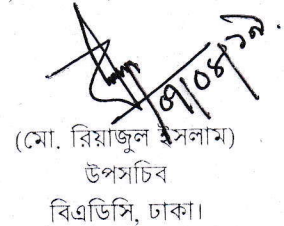 ০৭/০৪/১৯
(মো. রিয়াজুল ইসলাম)
উপসচিব
বিএডিসি, ঢাকা।